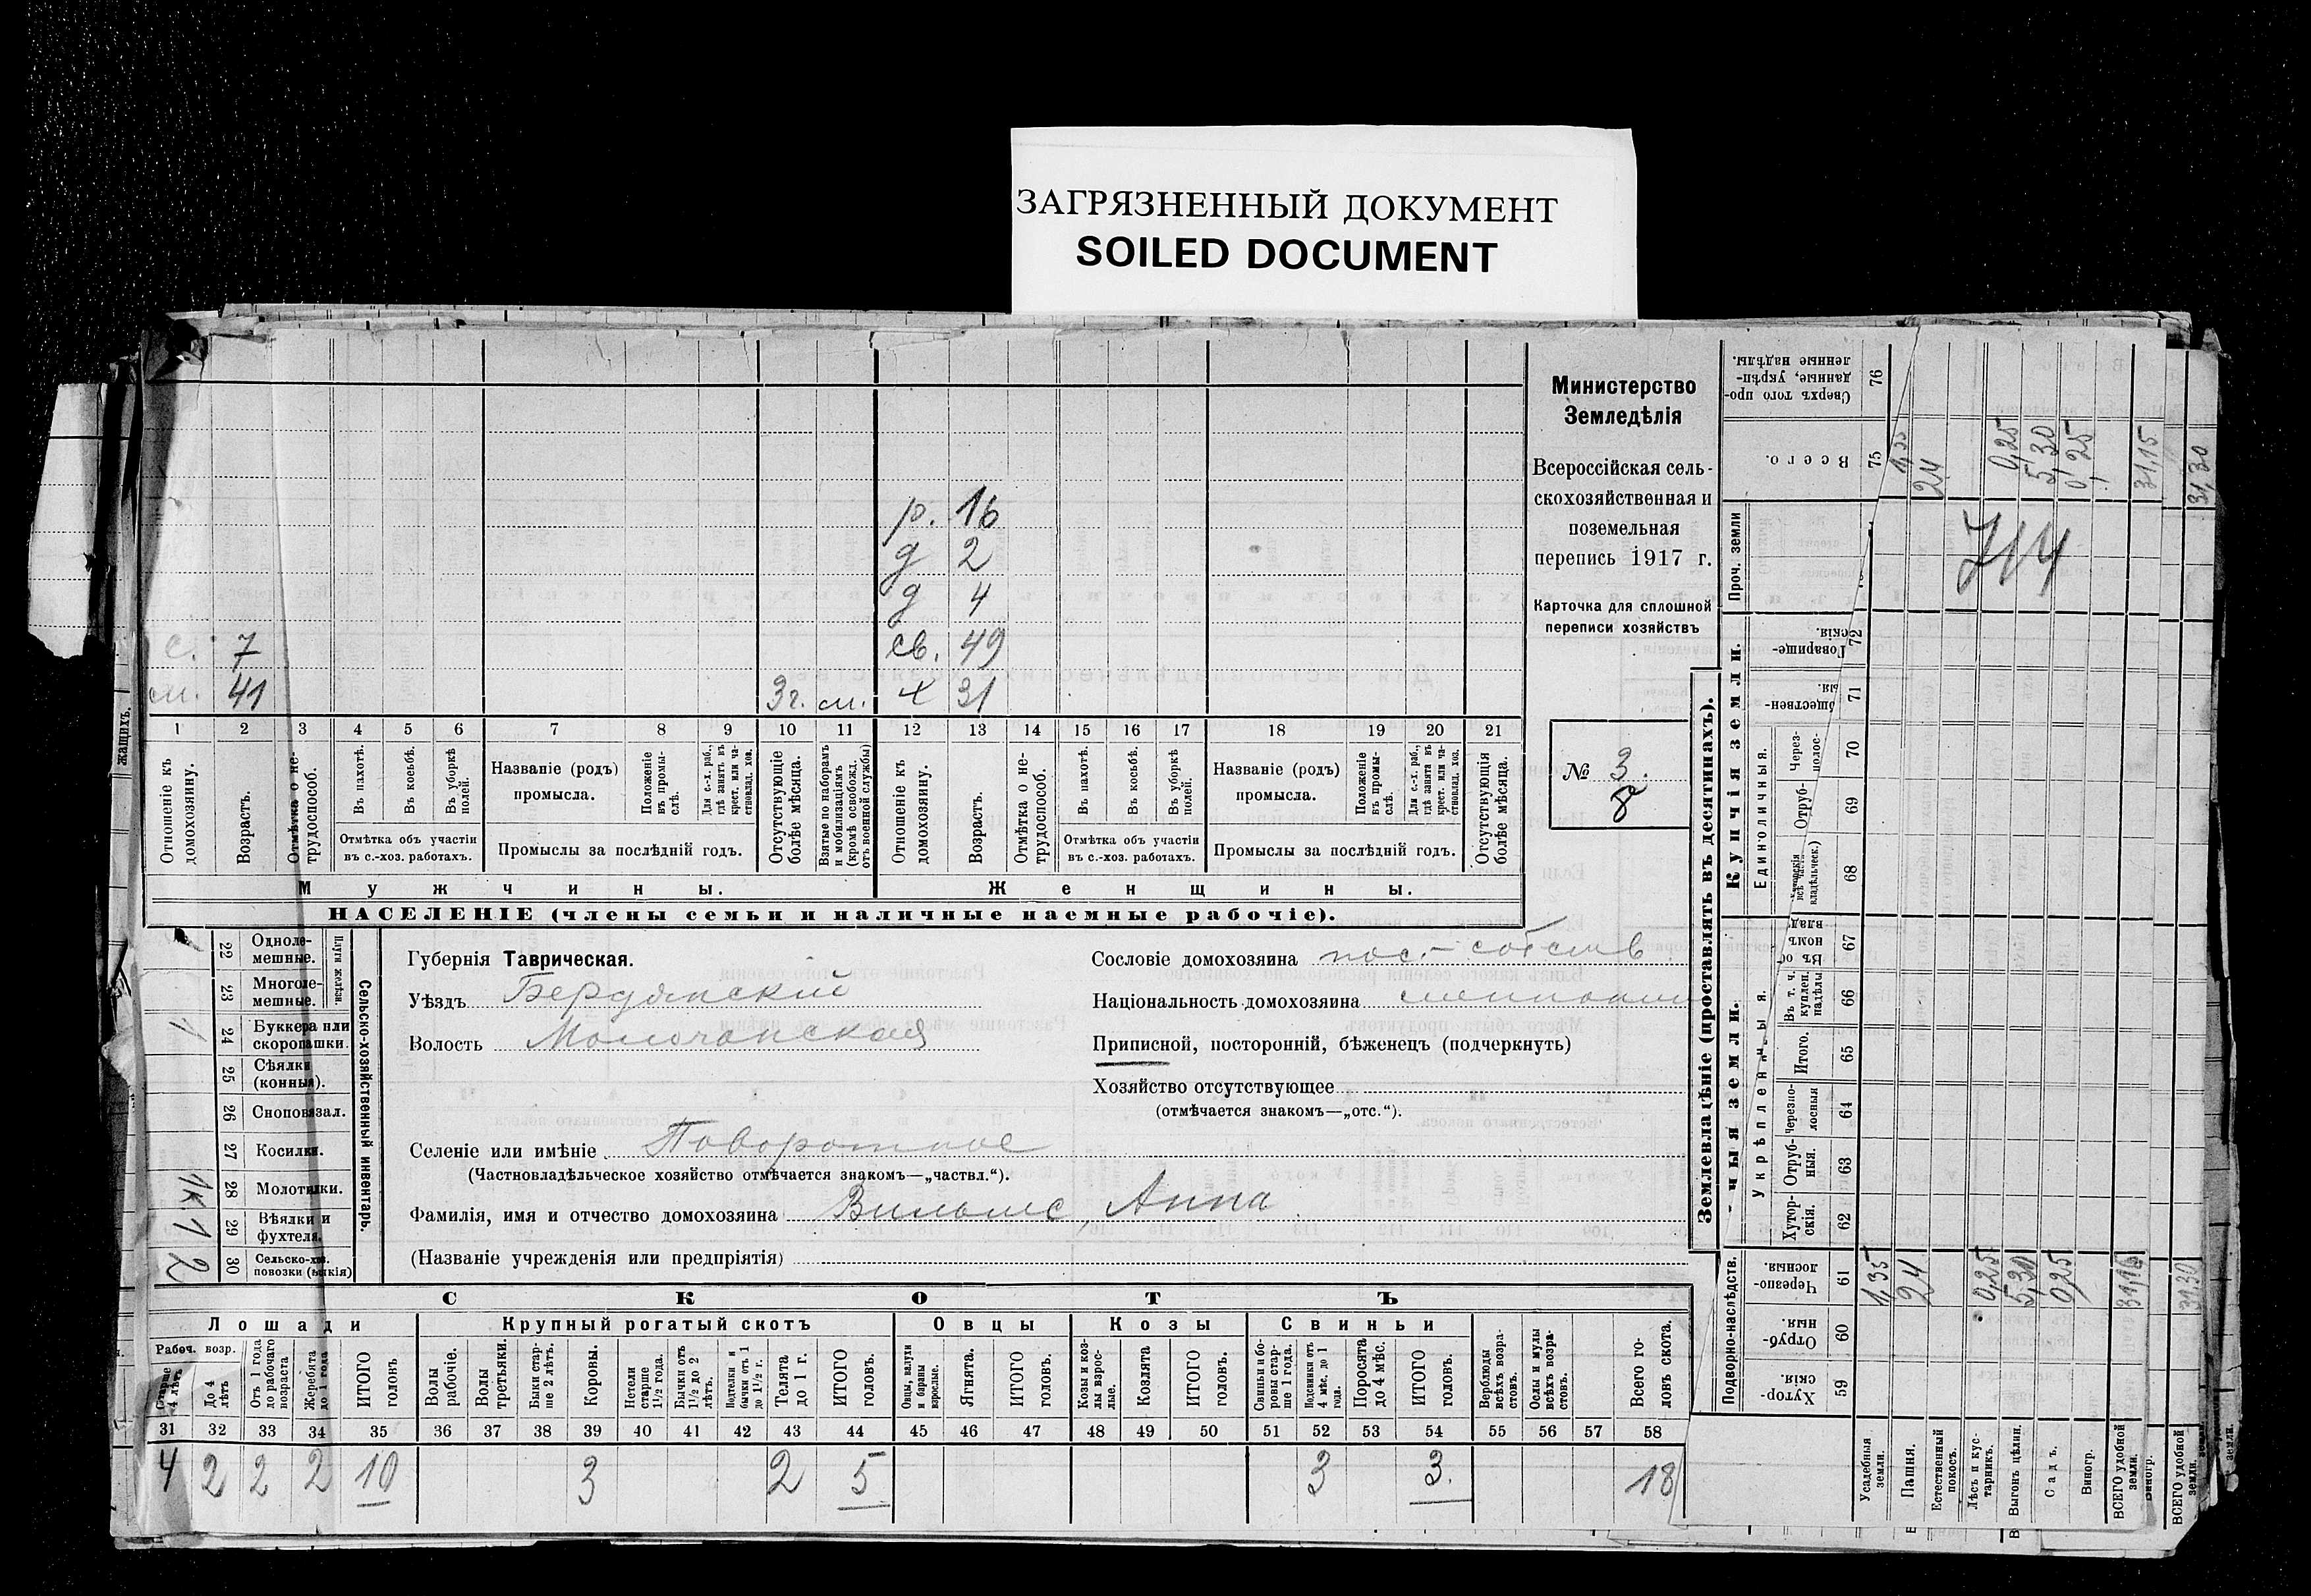 ЗАГРЯЗНЕННЫЙ ДОКУМЕНТ
SOILED DOCUMENT
р. 16
д 2
д 4
с. 7 св. 49
м. 41 3г. м. х 31
1 2 3 4 5 6 7 8 9 10 11 12 13 14 15 16 17 18 19 20 21
Отношеніе къ домохозяину.
Возрастъ.
Отмѣтка о нетрудоспособ.
Въ пахотѣ.
Въ косьбѣ.
Въ уборкѣ полей.
Отмѣтка объ участіи въ с.-хоз. работахъ.
Названіе (родъ) промысла.
Положеніе въ промыслѣ.
Для с.-х. раб., гдѣ занятъ въ крест. или частновлад. хоз.
Промыслы за послѣдній годъ.
Отсутствующіе болѣе мѣсяца.
Взятые по наборамъ и мобилизаціямъ (кромѣ освобожд. отъ военной службы)
Отношеніе къ домохозяину.
Возрастъ.
Отмѣтка о нетрудоспособ.
Въ пахотѣ.
Въ косьбѣ.
Въ уборкѣ полей.
Отмѣтка объ участіи въ с.-хоз. работахъ.
Названіе (родъ) промысла.
Положеніе въ промыслѣ.
Для с.-х. раб., гдѣ занята въ крест. или частновлад. хоз.
Промыслы за послѣдній годъ.
Отсутствующія болѣе мѣсяца.
Мужчины. Женщины.
НАСЕЛЕНІЕ (члены семьи и наличные наемные рабочіе).
Министерство
Земледѣлія
Всероссійская сель-
скохозяйственная и
поземельная
перепись 1917 г.
Карточка для сплошной
переписи хозяйствъ
№ 3.
8
Губернія Таврическая.
Уѣздъ Бердянскій
Волость Молочанская
Селеніе или имѣніе Поворотное
(Частновладѣльческое хозяйство отмѣчается знакомъ—„частвл.“).
Фамилія, имя и отчество домохозяина Вильмс, Анна
(Названіе учрежденія или предпріятія)
Сословіе домохозяина пос.-собств
Національность домохозяина
Приписной, посторонній, бѣженецъ (подчеркнуть)
Хозяйство отсутствующее
(отмѣчается знакомъ—„отс.“).
Сельско-хозяйственный инвентарь.
Плуги желѣзн.
22 Однолемешные.
23 Многолемешные.
1 24 Буккера или скоропашки.
25 Сѣялки (конныя).
26 Сноповязал.
27 Косилки.
1к 28 Молотилки.
1 29 Вѣялки и фухтеля.
2 30 Сельско-хоз. повозки
СКОТЪ
Лошади Крупный рогатый скотъ Овцы Козы Свиньи
Рабоч. возр.
Старше 4 лѣтъ
До 4 лѣтъ
Отъ 1 года до рабочаго возраста
Жеребята до 1 года
ИТОГО головъ
Волы рабочіе.
Волы третьяки.
Быки старше 2 лѣтъ.
Коровы.
Нетели старше 1½ года.
Бычки отъ 1½ до 2 лѣтъ.
Подтелки и бычки отъ 1 до 1½ г.
Телята до 1 г.
ИТОГО головъ.
Овцы, валухи и бараны взрослые.
Ягнята.
ИТОГО головъ.
Козы и козлы взрослые.
Козлята
ИТОГО головъ.
Свиньи и боровы старше 1 года.
Подсвинки отъ 4 мѣс. до 1 года.
Поросята до 4 мѣс.
ИТОГО головъ.
Верблюды всѣхъ возрастовъ.
Ослы и мулы всѣхъ возрастовъ.
Всего головъ скота.
31 32 33 34 35 36 37 38 39 40 41 42 43 44 45 46 47 48 49 50 51 52 53 54 55 56 57 58
4 2 2 2 10 3 2 5 3 3. 18
Землевладѣніе (проставлять въ десятинахъ).
Сверхъ того проданные, укрѣпленные надѣлы. 76
Всего. 75
Проч. земли
Купчія земли.
Товарищескія. 72
71
Единоличныя.
Черезполос- 70
Отруб- 69
68
67
Въ т. ч. куплен. надѣлы 66
Укрѣпленныя.
Итого. 65
Черезполосныя 64
Отрубныя. 63
Хуторскія. 62
Подворно-наслѣдств.
Черезполосныя. 61
Отрубныя. 60
Хуторскія. 59
24 0,25 5,30 0,25 31,15 31,30
1,35 24 0,25 5,30 0,25 31,30
Усадебныя земли.
Пашня.
Естественный покосъ.
Лѣсъ и кустарникъ.
Выгонъ цѣлин.
Садъ.
Виногр.
ВСЕГО удобной земли.
Виногр.
ВСЕГО удобной земли.